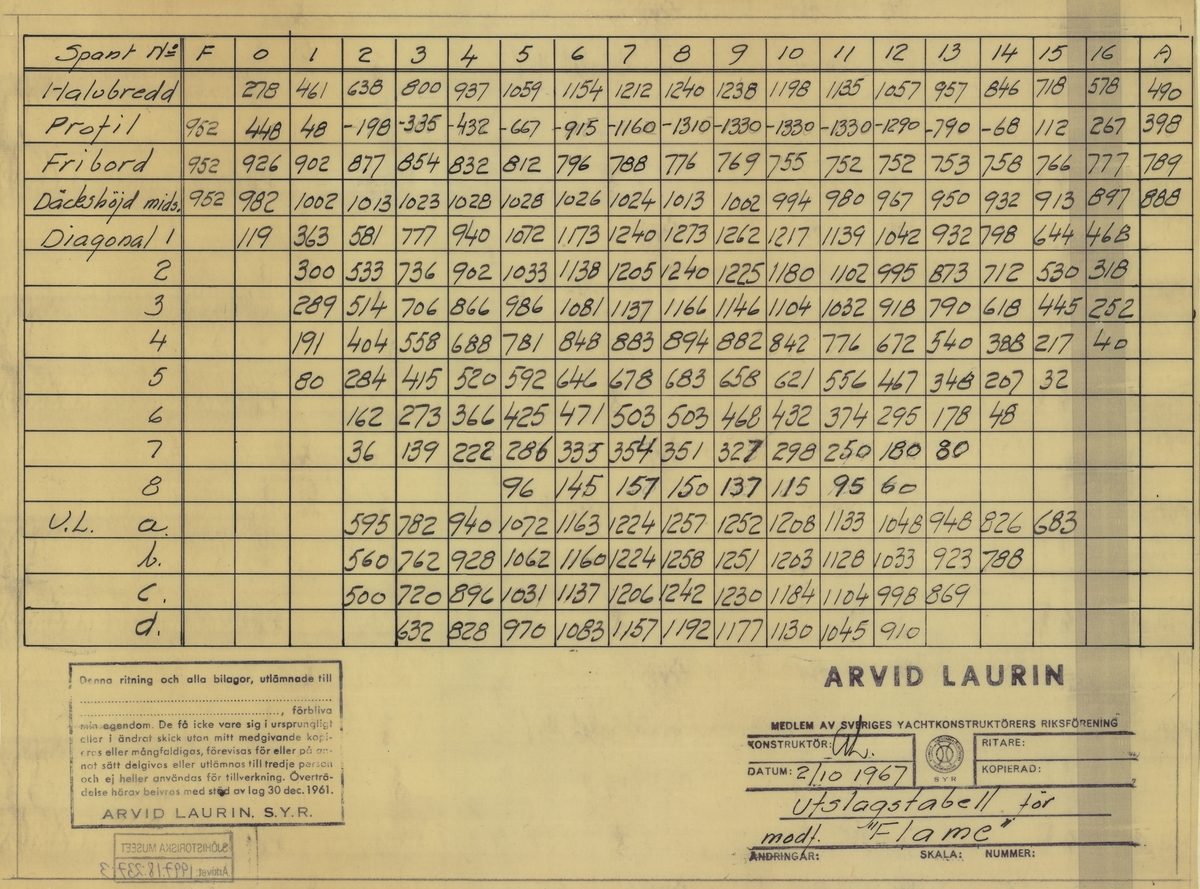 Spant No F 0 1 2 3 4 5 6 7 8 9 10 11 12 13 14 15 16 A
Halvbredd 278 461 638 800 937 1059 1154 1212 1240 1238 1198 1135 1057 957 846 718 578 490
Profil 952 448 48 -198 -335 -432 -667 -915 -1160 -1310 -1330 -1330 -1330 -1290 -790 -68 112 267 398
Fribord 952 926 902 877 854 832 812 796 788 776 769 755 752 752 753 758 766 777 789
Däckshöjd mids. 952 982 1002 1013 1023 1028 1028 1026 1024 1013 1002 994 980 967 950 932 913 897 888
Diagonal 1 119 363 581 777 940 1072 1173 1240 1273 1262 1217 1139 1042 932 798 644 468
2 300 533 736 902 1033 1138 1205 1240 1225 1180 1102 995 873 712 530 318
3 289 514 706 866 986 1081 1137 1166 1146 1104 1032 918 790 618 445 252
4 191 404 558 688 781 848 883 894 882 842 776 672 540 388 217 40
5 80 284 415 520 592 646 678 683 658 621 556 467 348 207 32
6 162 273 366 425 471 503 503 468 432 374 295 178 48
7 36 139 222 286 335 354 351 327 298 250 180 80
8 96 145 157 150 137 115 95 60
V.L. a. 595 782 940 1072 1163 1224 1257 1252 1208 1133 1048 948 826 683
b. 560 762 928 1062 1160 1224 1258 1251 1203 1128 1033 923 788
c. 500 720 896 1031 1137 1206 1242 1230 1184 1104 998 869
d. 632 828 970 1083 1157 1192 1177 1130 1045 910
Denna ritning och alla bilagor, utlämnade till
, förbliva
min egendom. De få icke vare sig i ursprungligt
eller i ändrat skick utan mitt medgivande kopi-
eras eller mångfaldigas, förevisas för eller på an-
nat sätt delgivas eller utlämnas till tredje person
och ej heller användas för tillverkning. Överträ-
delse härav beivras med stöd av lag 30 dec. 1961.
ARVID LAURIN, S.Y.R.
SJÖHISTORISKA MUSEET
Arkivet: 1997:18:237:3
ARVID LAURIN
MEDLEM AV SVERIGES YACHTKONSTRUKTÖRERS RIKSFÖRENING
KONSTRUKTÖR: AL.
RITARE:
DATUM: 2/10 1967
SYR
KOPIERAD:
Utslagstabell för
modf. "Flame"
ÄNDRINGAR: SKALA: NUMMER: